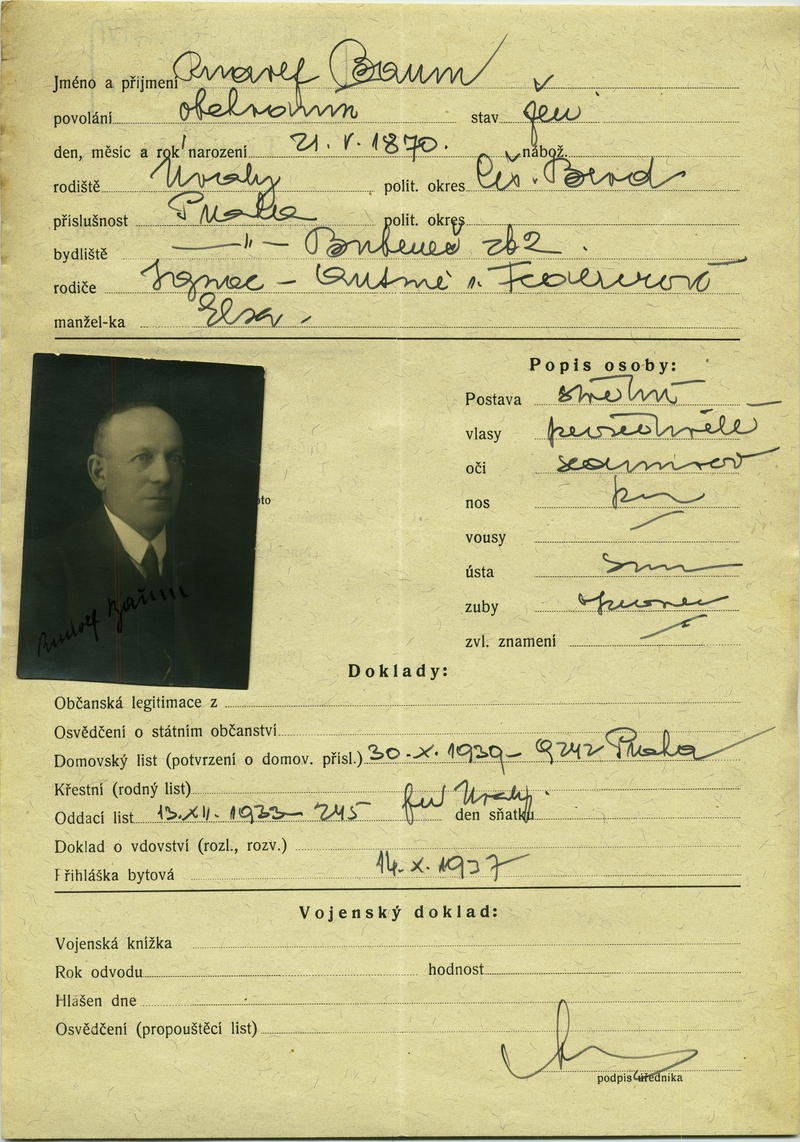 Jméno a přijmení Rudolf Baum
povolání obchodník stav žen
den, měsíc a rok narození 21. V. 1870. nábož.
rodiště polit. okres Čes. Brod
příslušnost Praha polit. okres
bydliště —"— Bubeneč
rodiče Ignac –
manžel-ka Elsa
oto
Rudolf Baum
Popis osoby:
Postava střední
vlasy prošedivělé
oči
nos
vousy
ústa
zuby
zvl. znamení
Doklady:
Občanská legitimace z
Osvědčení o státním občanství
Domovský list (potvrzení o domov. přísl.) 30.X.1939 – Praha
Křestní (rodný list)
Oddací list 13.XII.1933 – 245 den sňatku
Doklad o vdovství (rozl., rozv.)
Přihláška bytová 14.X.1937
Vojenský doklad:
Vojenská knížka
Rok odvodu hodnost
Hlášen dne
Osvědčení (propouštěcí list)
podpis úředníka